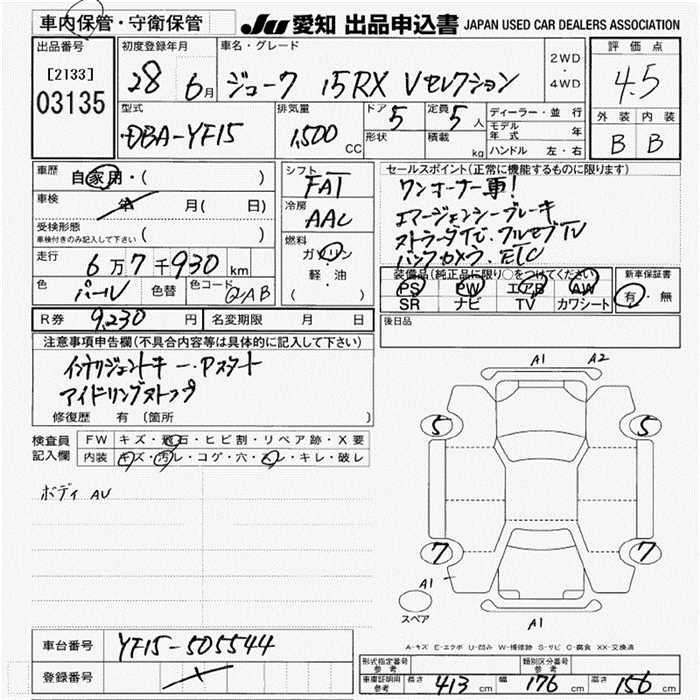 車内保管・守衛保管
JU 愛知 出品申込書 JAPAN USED CAR DEALERS ASSOCIATION
出品番号
[2133]
03135
初度登録年月
28 6月
車名・グレード
ジューク 15RX Vセレクション
2WD・4WD
評価点
4.5
外装 内装
B B
型式
DBA-YF15
排気量
1,500 CC
ドア 5
形状
定員 5人
積載 kg
ディーラー・並行
モデル年式 年
ハンドル 左・右
車歴 自家用・( )
車検 年 月( 日)
受検形態
車検付きのみ記入して下さい ( )
走行 6万7千930 km
色 パール 色替 色コード QAB
シフト FAT
冷房 AAC
燃料 ガソリン
軽・油
( )
セールスポイント(正常に機能するものに限ります)
ワンオーナー車!
エマージェンシーブレーキ
ストラーダナビ、フルセグTV
バックカメラ、ETC
装備品(純正品に限り○をつけてください)
PS PW エアB AW
SR ナビ TV カワシート
新車保証書
有・無
R券 9,230円 名変期限 月 日
後日品
注意事項申告欄(不具合内容等は具体的に記入して下さい)
インテリジェントキー・Pスタート
アイドリングストップ
修復歴 有 (箇所 )
検査員記入欄
FW キズ・飛石・ヒビ割・リペア跡・X要
内装 キズ・汚レ・コゲ・穴・スレ・キレ・破レ
ボディ AU
A1 A2
5 5
7 7
A1
A1
スペア
A-キズ E-エクボ U-凹み W-補修跡 S-サビ C-腐食 XX-交換済
車台番号 YF15-505544
登録番号
形式指定番号 参考
類別区分番号 参考
車庫証明用 参考 長さ 413 cm 幅 176 cm 高さ 156 cm